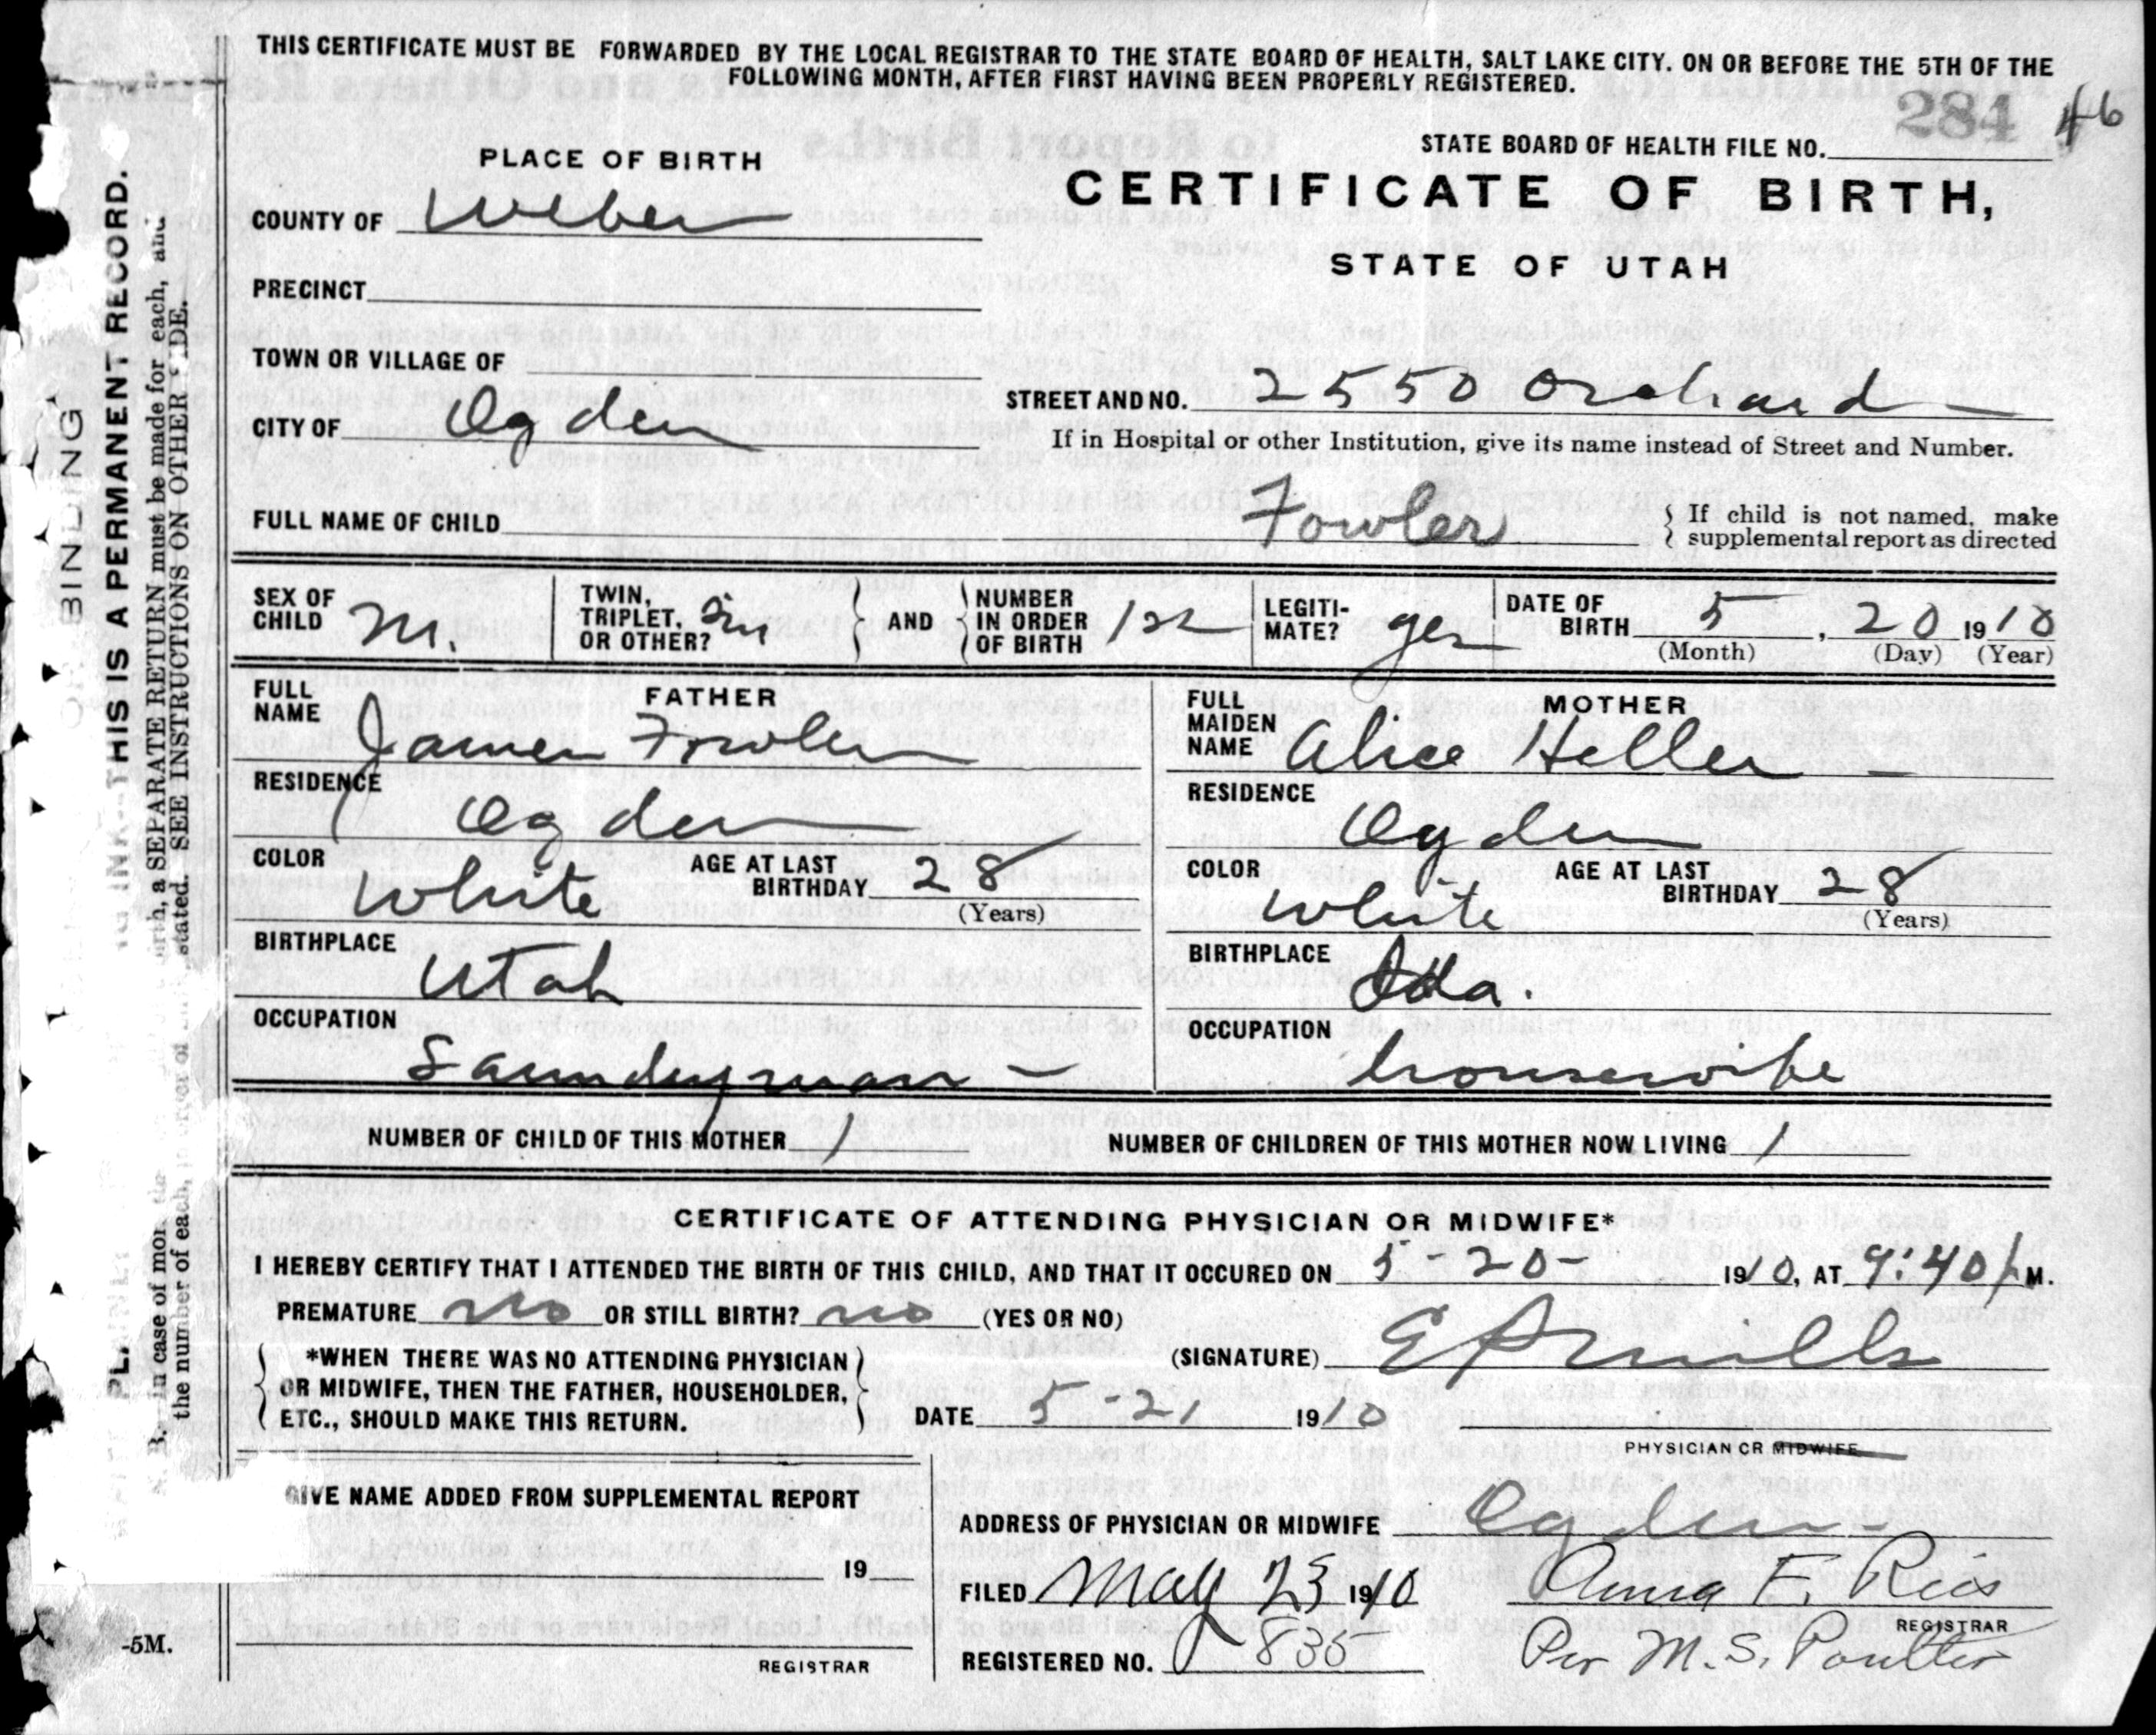 THIS CERTIFICATE MUST BE FORWARDED BY THE LOCAL REGISTRAR TO THE STATE BOARD OF HEALTH, SALT LAKE CITY. ON OR BEFORE THE 5TH OF THE
FOLLOWING MONTH, AFTER FIRST HAVING BEEN PROPERLY REGISTERED.
284 46
STATE BOARD OF HEALTH FILE NO.
PLACE OF BIRTH
CERTIFICATE OF BIRTH,
STATE OF UTAH
COUNTY OF Weber
PRECINCT
TOWN OR VILLAGE OF
CITY OF Ogden
STREET AND NO. 2550 Orchard
If in Hospital or other Institution, give its name instead of Street and Number.
FULL NAME OF CHILD Fowler
If child is not named, make
supplemental report as directed
SEX OF CHILD M.
TWIN, TRIPLET, OR OTHER?
AND NUMBER IN ORDER OF BIRTH 1st
LEGITI-MATE? yes
DATE OF BIRTH 5, 20 1910
(Month) (Day) (Year)
FATHER
FULL NAME James Fowler
RESIDENCE Ogden
COLOR White AGE AT LAST BIRTHDAY 28
(Years)
BIRTHPLACE Utah
OCCUPATION Laundryman -
MOTHER
FULL MAIDEN NAME Alice Heller -
RESIDENCE Ogden
COLOR White AGE AT LAST BIRTHDAY 28
(Years)
BIRTHPLACE Ida.
OCCUPATION housewife
NUMBER OF CHILD OF THIS MOTHER 1 NUMBER OF CHILDREN OF THIS MOTHER NOW LIVING 1
CERTIFICATE OF ATTENDING PHYSICIAN OR MIDWIFE*
I HEREBY CERTIFY THAT I ATTENDED THE BIRTH OF THIS CHILD, AND THAT IT OCCURED ON 5-20- 1910, AT 9:40 M.
PREMATURE no OR STILL BIRTH? no (YES OR NO)
*WHEN THERE WAS NO ATTENDING PHYSICIAN
OR MIDWIFE, THEN THE FATHER, HOUSEHOLDER,
ETC., SHOULD MAKE THIS RETURN.
(SIGNATURE) E P Mills
DATE 5-21 1910
PHYSICIAN OR MIDWIFE
GIVE NAME ADDED FROM SUPPLEMENTAL REPORT
19
REGISTRAR
-5M.
ADDRESS OF PHYSICIAN OR MIDWIFE Ogden-
FILED May 23 1910 Anna F. Ries
REGISTRAR
REGISTERED NO. 835 Per M. S. Poulter
BINDING
INK--THIS IS A PERMANENT RECORD.
birth, a SEPARATE RETURN must be made for each, and
stated. SEE INSTRUCTIONS ON OTHER SIDE.
B. In case of more
the number of each, in